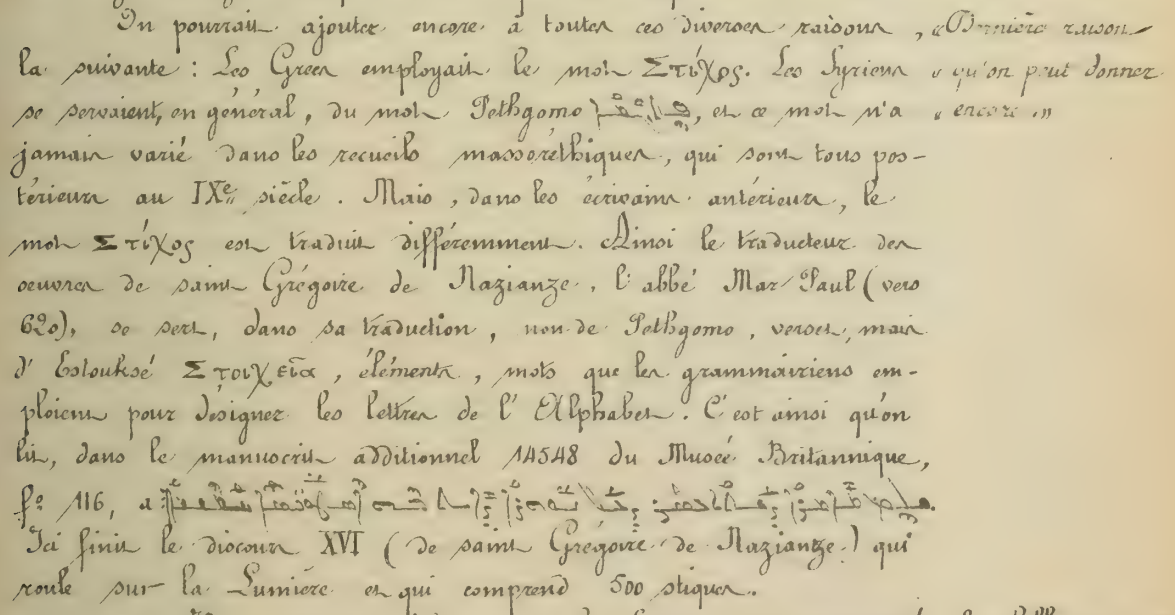 On pourrait ajouter encore à toutes ces diverses raisons, « Dernière raison
la suivante : Les Grecs employait le mot Στίχος. Les Syriens « qu'on peut donner
se servaient, en général, du mot Pethgomo, et ce mot n'a « encore. »
jamais varié dans les recueils massoréthiques, qui sont tous pos-
térieurs au IXe siècle. Mais, dans les écrivains antérieurs, le
mot Στίχος est traduit différemment. Ainsi le traducteur des
oeuvres de saint Grégoire de Nazianze, l'abbé Mar Paul (vers
620), se sert, dans sa traduction, non de Pethgomo, verset, mais
d'Estouksé Στοιχεῖα, éléments, mots que les grammairiens em-
ploient pour désigner les lettres de l'Alphabet. C'est ainsi qu'on
lit, dans le manuscrit additionnel 14548 du Musée Britannique,
fo 116, a
Ici finit le discours XVI (de saint Grégoire de Nazianze) qui
roule sur la Lumière et qui comprend 500 stiques.